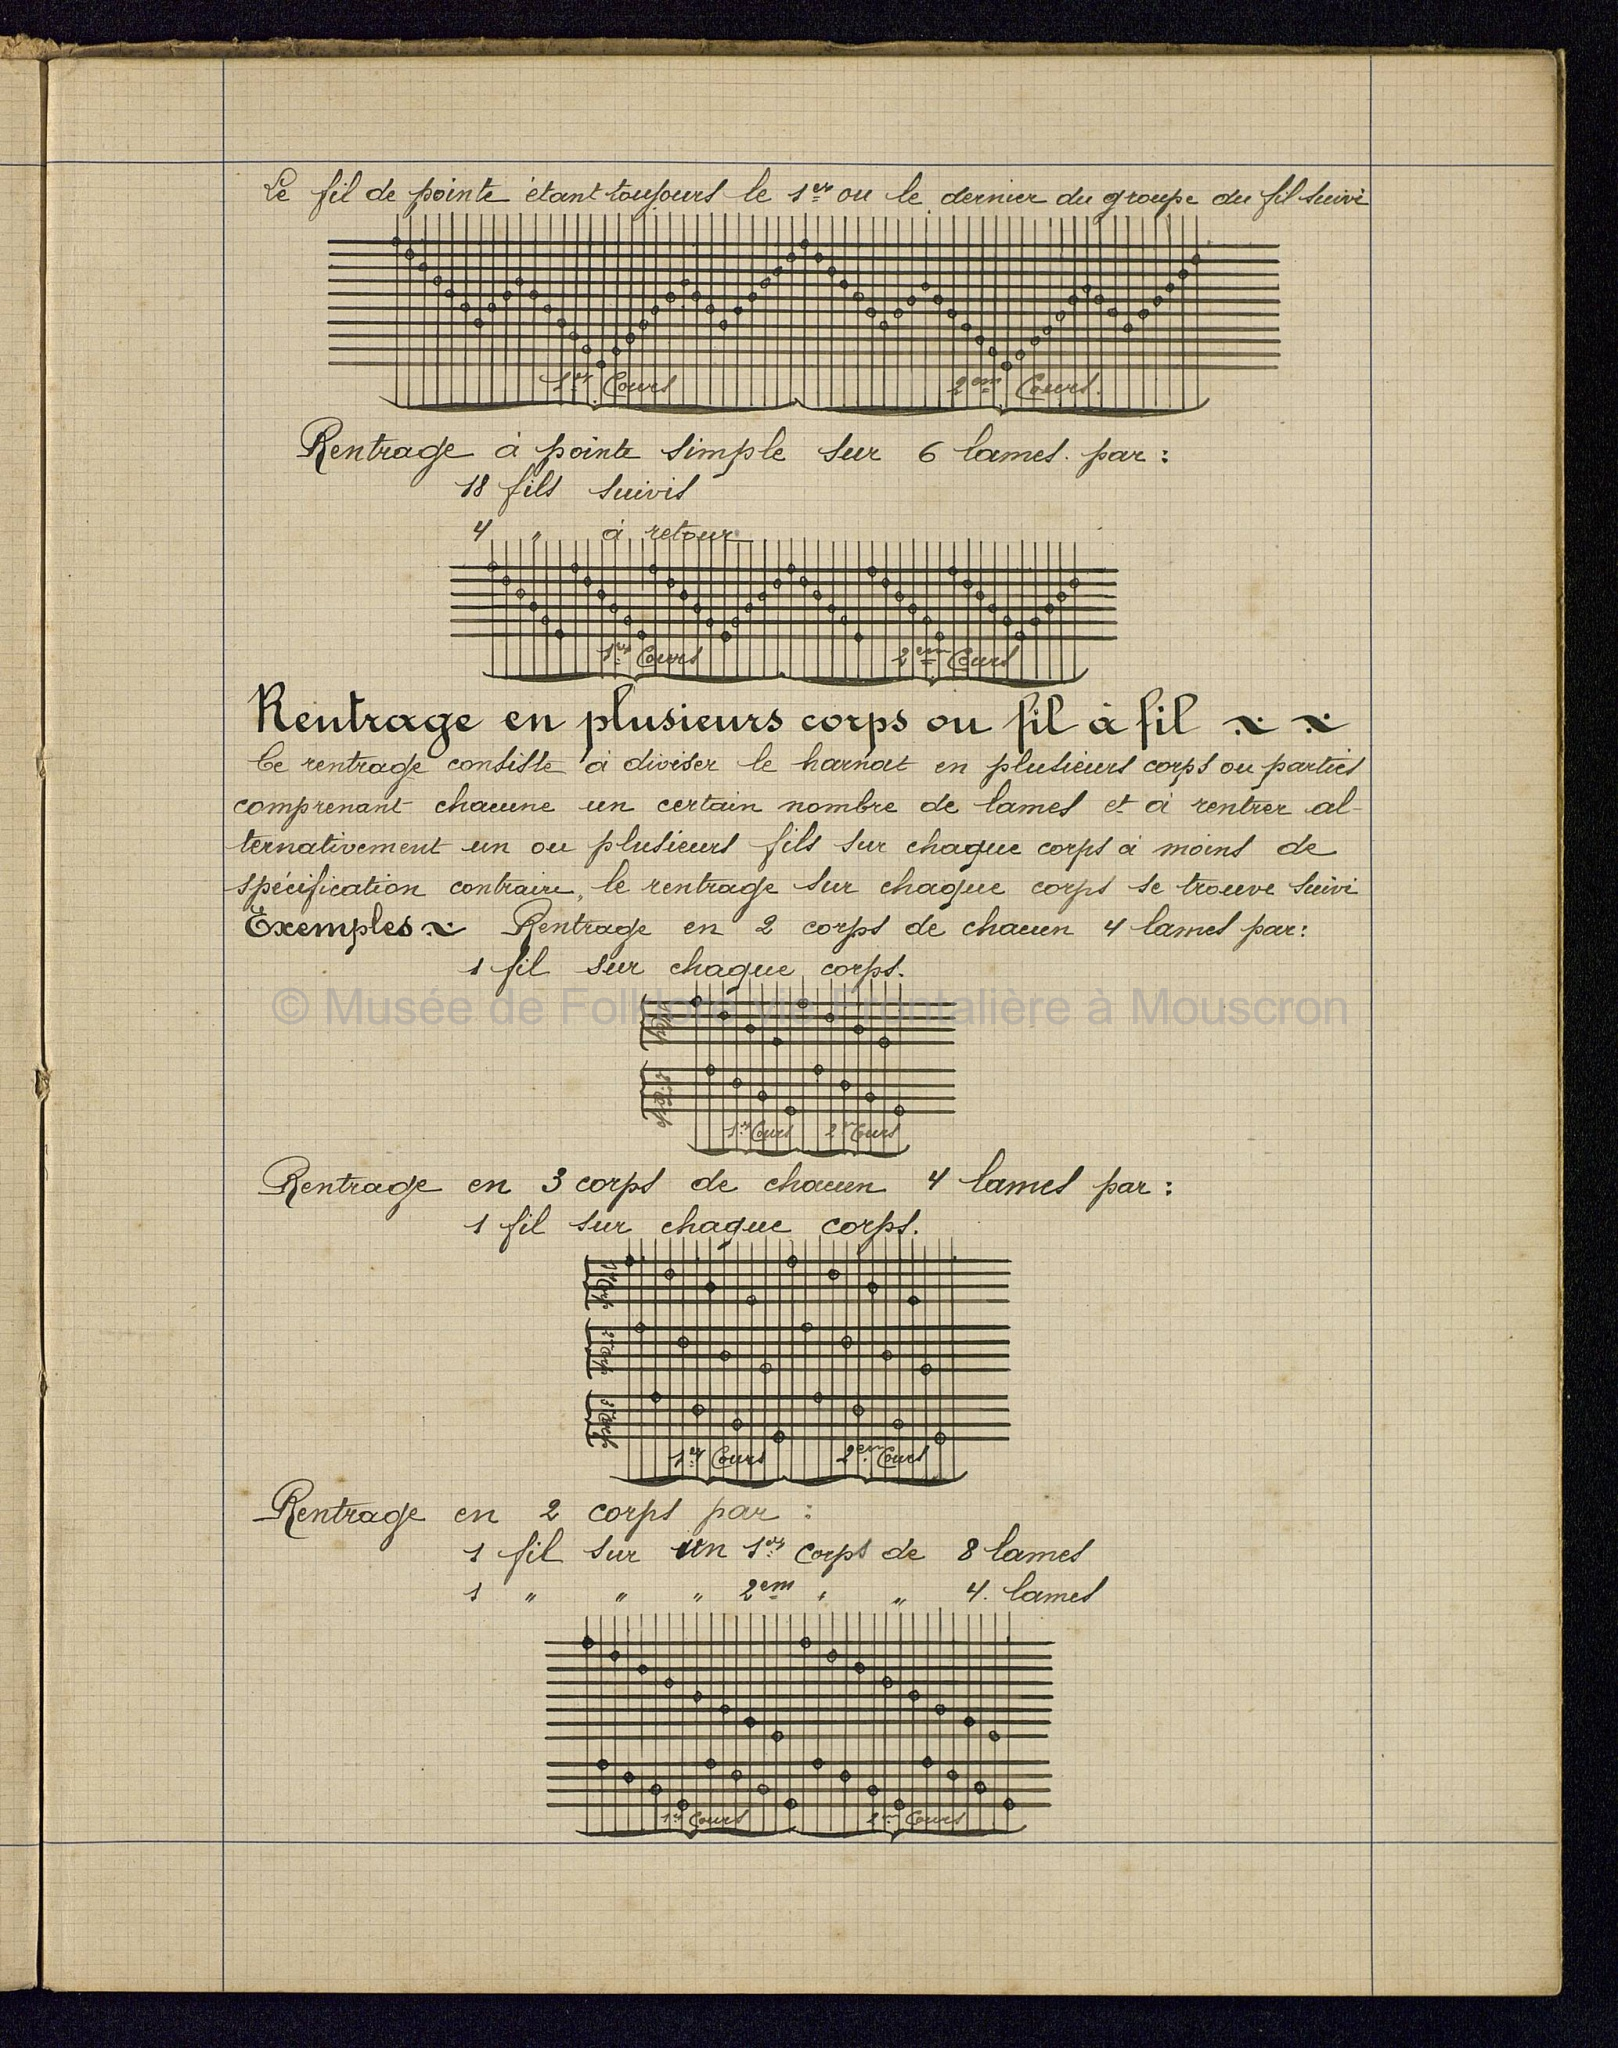 Le fil de pointe étant toujours le 1er ou le dernier du groupe du fil suivi
1er Cours 2em Cours.
Rentrage à pointe simple sur 6 lames. par:
18 fils suivis
4 " à retour
1er Cours 2em Cours
Rentrage en plusieurs corps ou fil à fil
Ce rentrage consiste à diviser le harnat en plusieurs corps ou parties
comprenant chacune un certain nombre de lames et à rentrer al-
ternativement un ou plusieurs fils sur chaque corps à moins de
spécification contraire, le rentrage sur chaque corps se trouve suivi
Exemples Rentrage en 2 corps de chacun 4 lames par:
1 fil sur chaque corps.
© Musée de Folklore vie Frontalière à Mouscron
1er Corp
2e Corp
1er Cours 2e Cours
Rentrage en 3 corps de chacun 4 lames par:
1 fil sur chaque corps.
1er Corp
2em Corp
3em Corp
1er Cours 2em Cours
Rentrage en 2 corps par:
1 fil sur un 1er corps de 8 lames
1 " " " 2em " " 4. lames
1er Cours 2em Cours